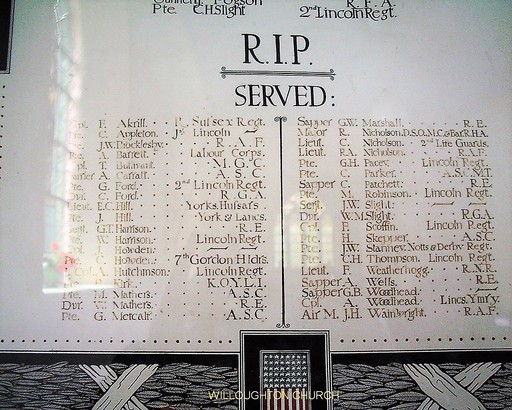 Pogson R. F. A.
Pte. C.H. Slight 2nd Lincoln Regt.
R.I.P.
SERVED:
E. Akrill. Sussex Regt.
C. Appleton. Lincoln
J.W. Brocklesby. R.A.F.
A. Barrett. Labour Corps.
T. Bulivant. A.M.O.C.
A. Carratt. A.S.C.
G. Ford. 2nd Lincoln Regt.
C. Ford. R.G.A.
Lieut. E.C. Hill. Yorks. Hussars.
J. Hill. York & Lancs.
G.T. Harrison. R.E.
W. Harrison. Lincoln Regt.
Howden.
C. Howden. 7th Gordon Hldrs.
A. Hutchinson. Lincoln Regt.
Kirk. K.O.Y.L.I.
Pte. M. Nathers. A.S.C.
Dvr. W. Nathers. R.E.
Pte. G. Metcalf. A.S.C.
Sapper G.W. Marshall. R.E.
Major R. Nicholson, D.S.O., M.C. & Bar, R.H.A.
Lieut. C. Nicholson. 2nd Life Guards.
Lieut. R.A. Nicholson. R.A.F.
Pte. G.H. Pacey. Lincoln Regt.
Pte. C. Parker. A.S.C., M.T.
Sapper C. Patchett. R.E.
Pte. M. Robinson. Lincoln Regt.
Sergt. J.W. Slight.
Dvr. W.M. Slight. R.G.A.
Cpl. E. Scoffin. Lincoln Regt.
Pte. H. Skepper. A.S.C.
Pte. J.W. Stanney. Notts & Derby Regt.
Pte. C.H. Thompson. Lincoln Regt.
Lieut. F. Weatherhogg. R.N.R.
Sapper A. Wells. R.E.
Sapper G.B. Woodhead.
Cpl. A. Woodhead. Lincs. Ymry.
Air M. J.H. Wainwright. R.A.F.
WILLOUGHTON CHURCH